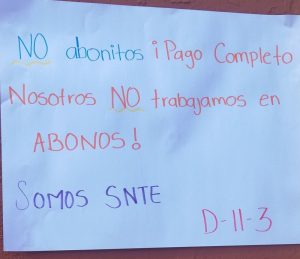 NO abonitos ¡Pago Completo
Nosotros NO trabajamos en
ABONOS!
SOMOS SNTE
D-11-3